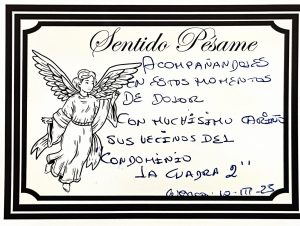 Sentido Pésame
ACOMPAÑANDOLES
EN ESTOS MOMENTOS
DE DOLOR
CON MUCHISIMO CARIÑO
SUS VECINOS DEL
CONDOMINIO
"LA CUADRA 2"
10-III-25